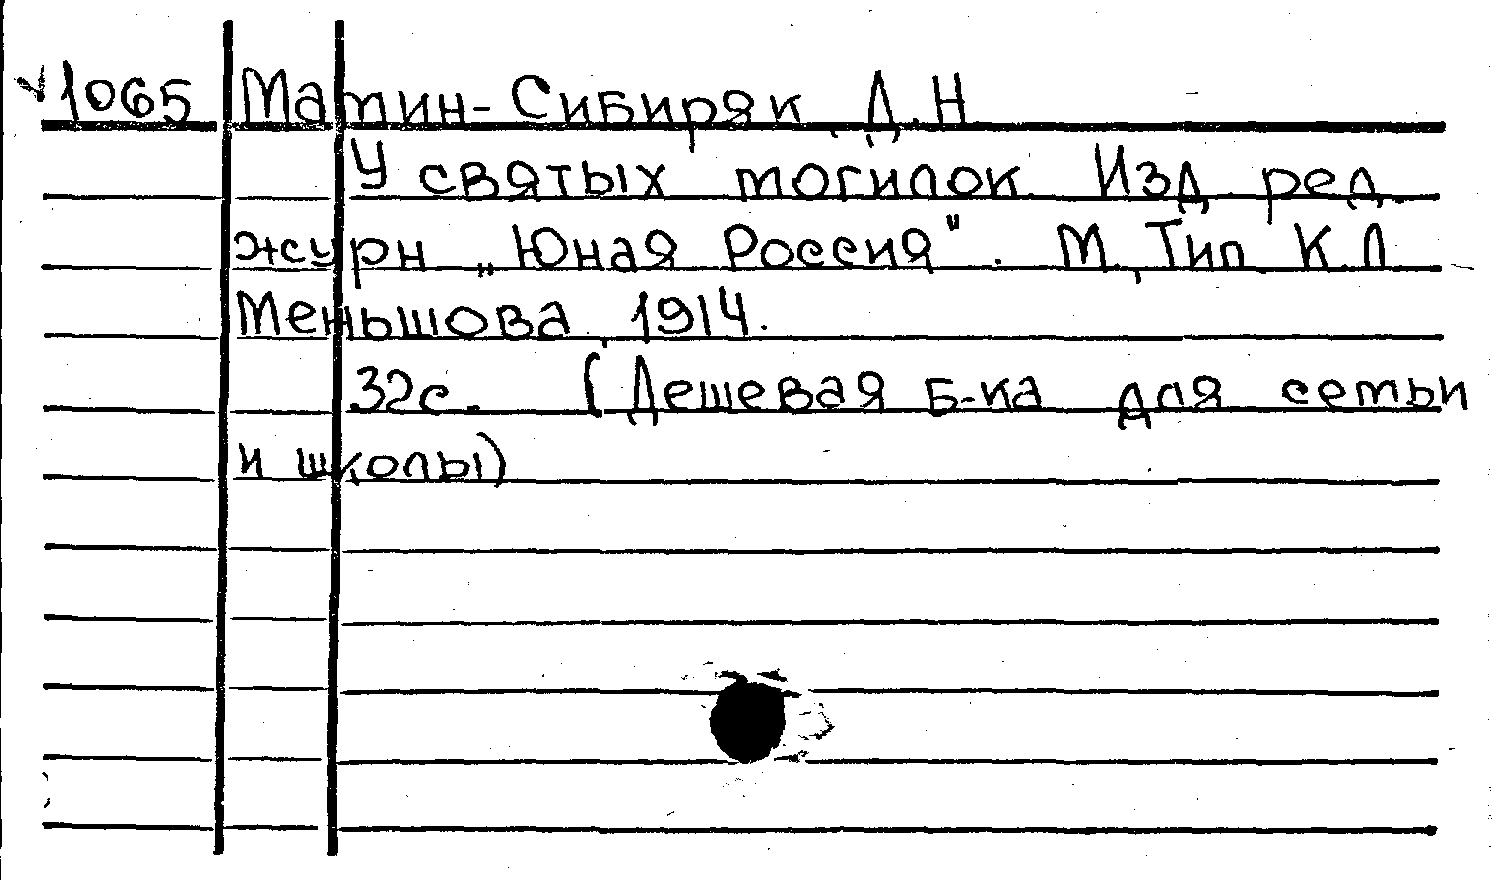 1065 Мамин-Сибиряк, Д.Н.
У святых могилок. Изд. ред.
журн. „Юная Россия". М., Тип. К.Л.
Меньшова, 1914.
32с. (Дешевая б-ка для семьи
и школы)